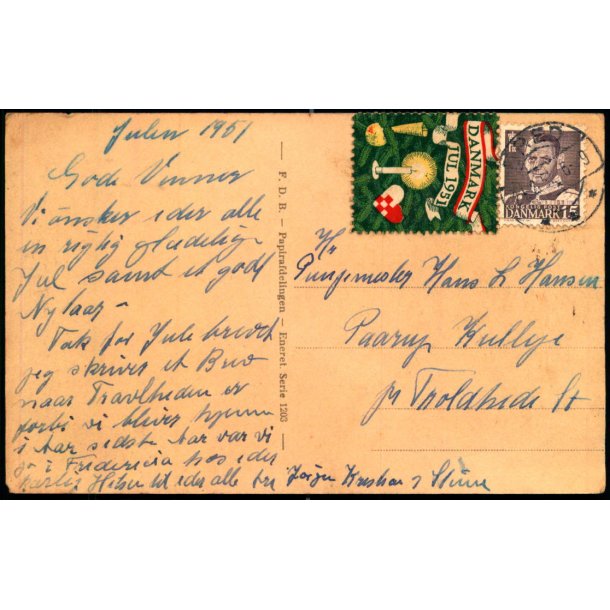 Julen 1951
Gode Venner
Vi ønsker eder alle
en rigtig glædelig
Jul samt et godt
Nytaar -
Tak for Jule brevet
jeg skriver et Brev
naar Travlheden er
forbi vi bliver hjemme
i Aar sidste Aar var vi
jo i Fredericia hos eder
Kærlig Hilsen til eder alle fra Jørgen Kresten & Stinne
— F. D. B. — Papirafdelingen — Eneret Serie 1203 —
DANMARK
JUL 1951
DANMARK 15
Hr
Hans L Hansen
Paarup
pr Troldhede St